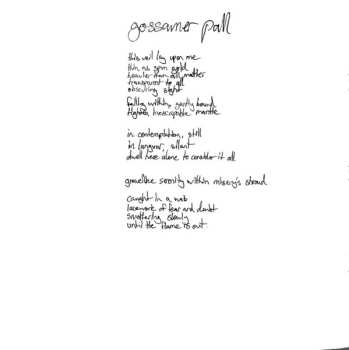 gossamer pall
this veil lay upon me
thin as spun gold
heavier than all matter
transparent to all
obscuring sight
falling within, gently bound
tighten, inescapable mantle
in contemplation, still
in languor, silent
dwell here alone to consider it all
gravelike serenity within misery's shroud
caught in a web
lacework of fear and doubt
smothering slowly
until the flame is out